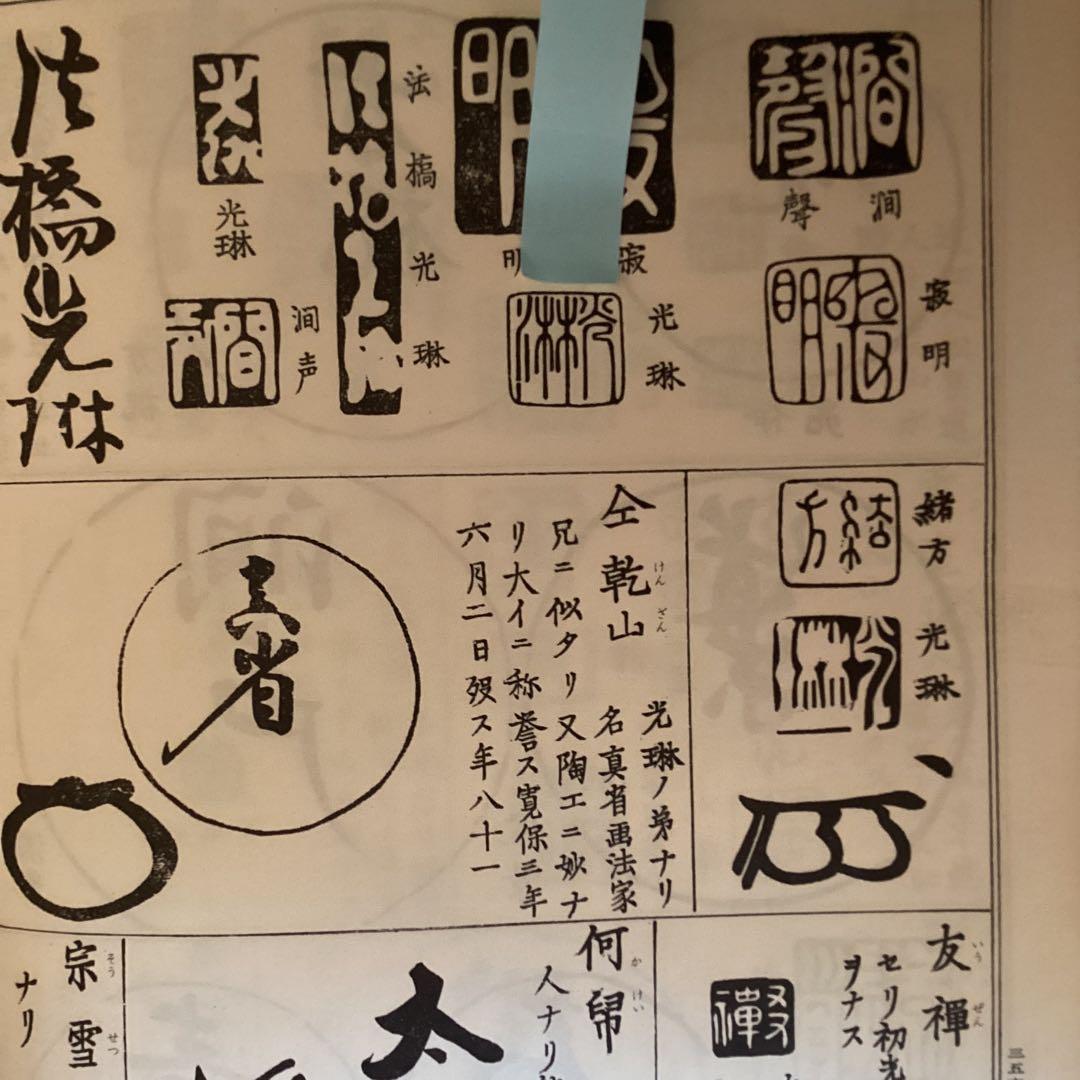 澗聲
寂明
光琳
寂明
法橋光琳
光琳
澗声
法橋光琳
緒方
光琳
仝 乾山
けんざん
光琳ノ弟ナリ
名真省画法家
兄ニ似タリ又陶工ニ妙ナ
リ大イニ称誉ス寛保三年
六月二日歿ス年八十一
真省
友禪
いうぜん
セリ初光
ヲナス
何帠
かけい
人ナリ
太
宗雪
そうせつ
ナリ
三五